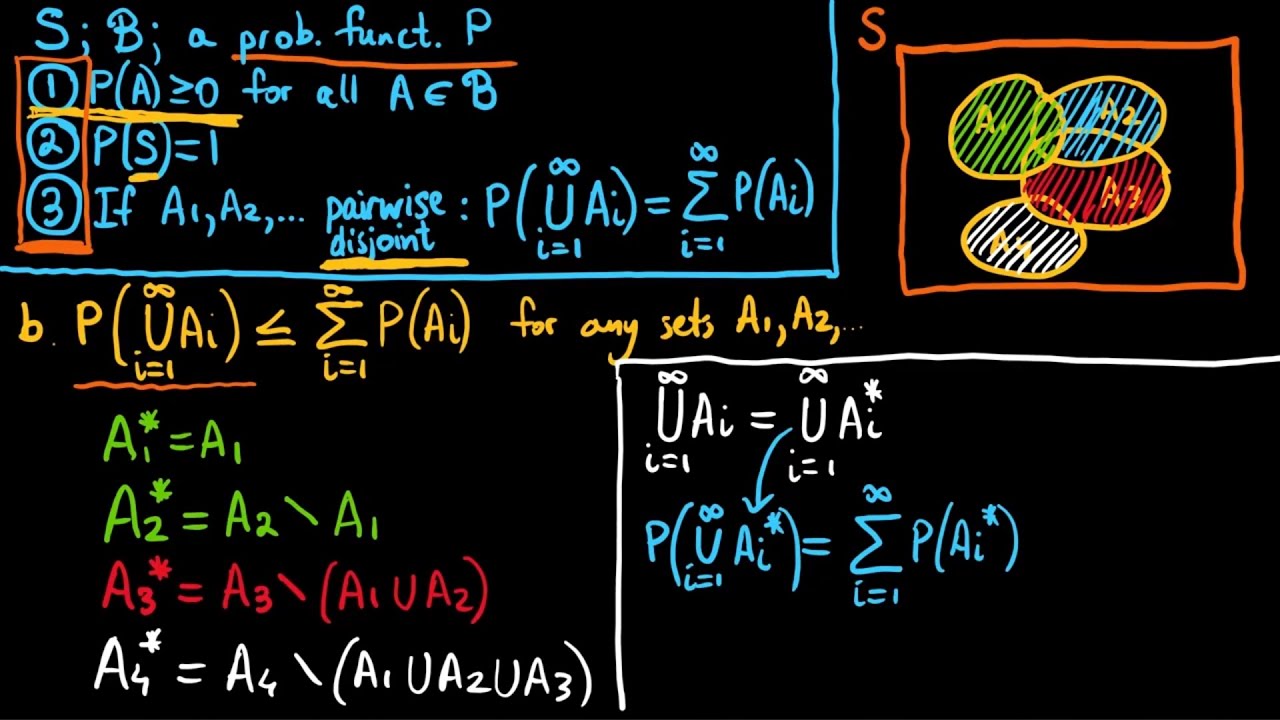 S; B; a prob. funct. P
① P(A) ≥ 0 for all A ∈ B
② P(S) = 1
③ If A₁, A₂, ... pairwise disjoint : P(⋃_{i=1}^{∞} Aᵢ) = ∑_{i=1}^{∞} P(Aᵢ)
S
A₁
A₂
A₃
A₄
b. P(⋃_{i=1}^{∞} Aᵢ) ≤ ∑_{i=1}^{∞} P(Aᵢ) for any sets A₁, A₂, ...
A₁* = A₁
A₂* = A₂ \ A₁
A₃* = A₃ \ (A₁ ∪ A₂)
A₄* = A₄ \ (A₁ ∪ A₂ ∪ A₃)
⋃_{i=1}^{∞} Aᵢ = ⋃_{i=1}^{∞} Aᵢ*
P(⋃_{i=1}^{∞} Aᵢ*) = ∑_{i=1}^{∞} P(Aᵢ*)